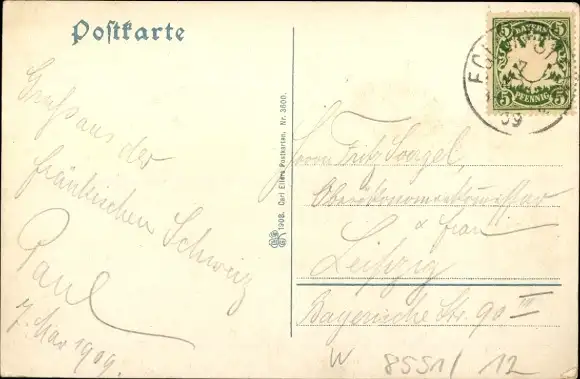 Postkarte
Gruß aus der
fränkischen Schweiz
Paul
7. Mai 1909.
1908. Carl Ellers Postkarten. Nr. 3800.
5 BAYERN 5
5 PFENNIG 5
09
Herrn Fritz Soergel,
Oberökonomiekommissar
& Frau
Leipzig
Bayerische Str. 90 III
W 8551/ 12